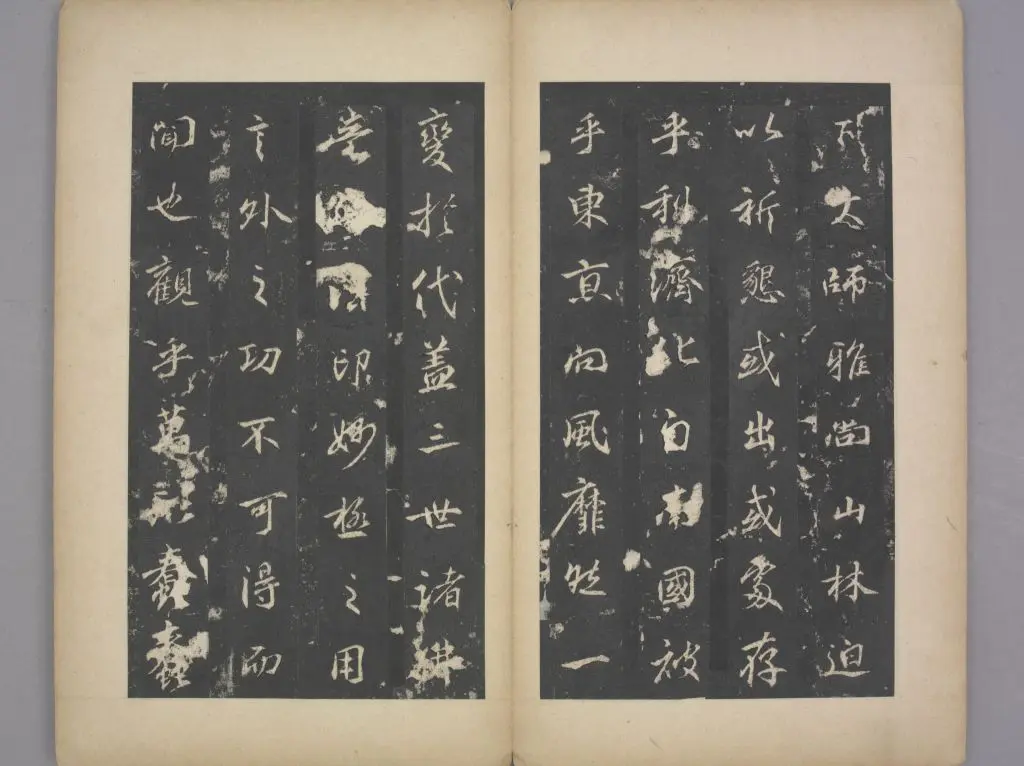 大師雅尚山林迫
以祈懇或出或處存
乎利濟北自南國被
乎東京向風靡然一
變於代蓋三世諸佛
法印妙極之用
言外之功不可得而
聞也觀乎萬形蠢蠢